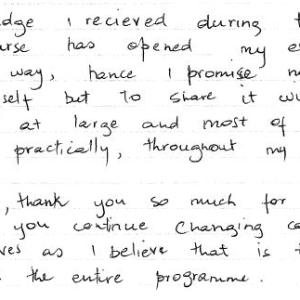 dge I recieved during t
urse has opened my e
way, hence I promise n
self but to share it wi
at large and most of
practically, throughout my
, thank you so much for
you continue changing co
ves as I believe that is t
the entire programme.